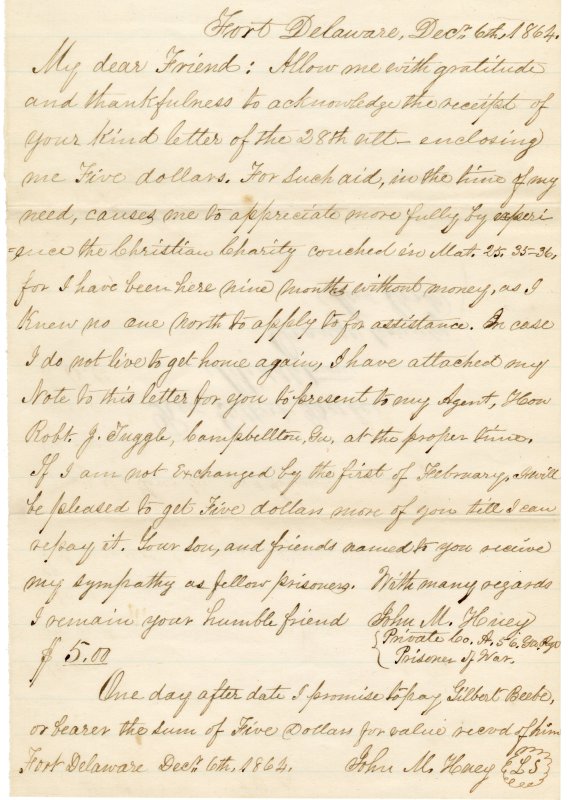 Fort Delaware, Decr. 6th, 1864.
My dear Friend: Allow me with gratitude
and thankfulness to acknowledge the receipt of
your kind letter of the 28th ult- enclosing
me Five dollars. For such aid, in the time of my
need, causes me to appreciate more fully by experi
-ence the Christian Charity couched in Mat. 25. 35-36,
for I have been here nine months without money, as I
knew no one north to apply to for assistance. In case
I do not live to get home again, I have attached my
Note to this letter for you to present to my Agent, Hon
Robt. J. Tuggle, Campbellton, Ga, at the proper time.
If I am not Exchanged by the first of February, I will
be pleased to get Five dollars more of you till I can
repay it. Your son, and friends named to you receive
my sympathy as fellow prisoners. With many regards
I remain your humble friend John M. Huey
Private Co. A. 56, Ga. Rgt
Prisoner of War.
$ 5.00
One day after date I promise to pay Gilbert Beebe,
or bearer the sum of Five Dollars for value recvd of him
Fort Delaware Decr. 6th, 1864. John M. Huey LS